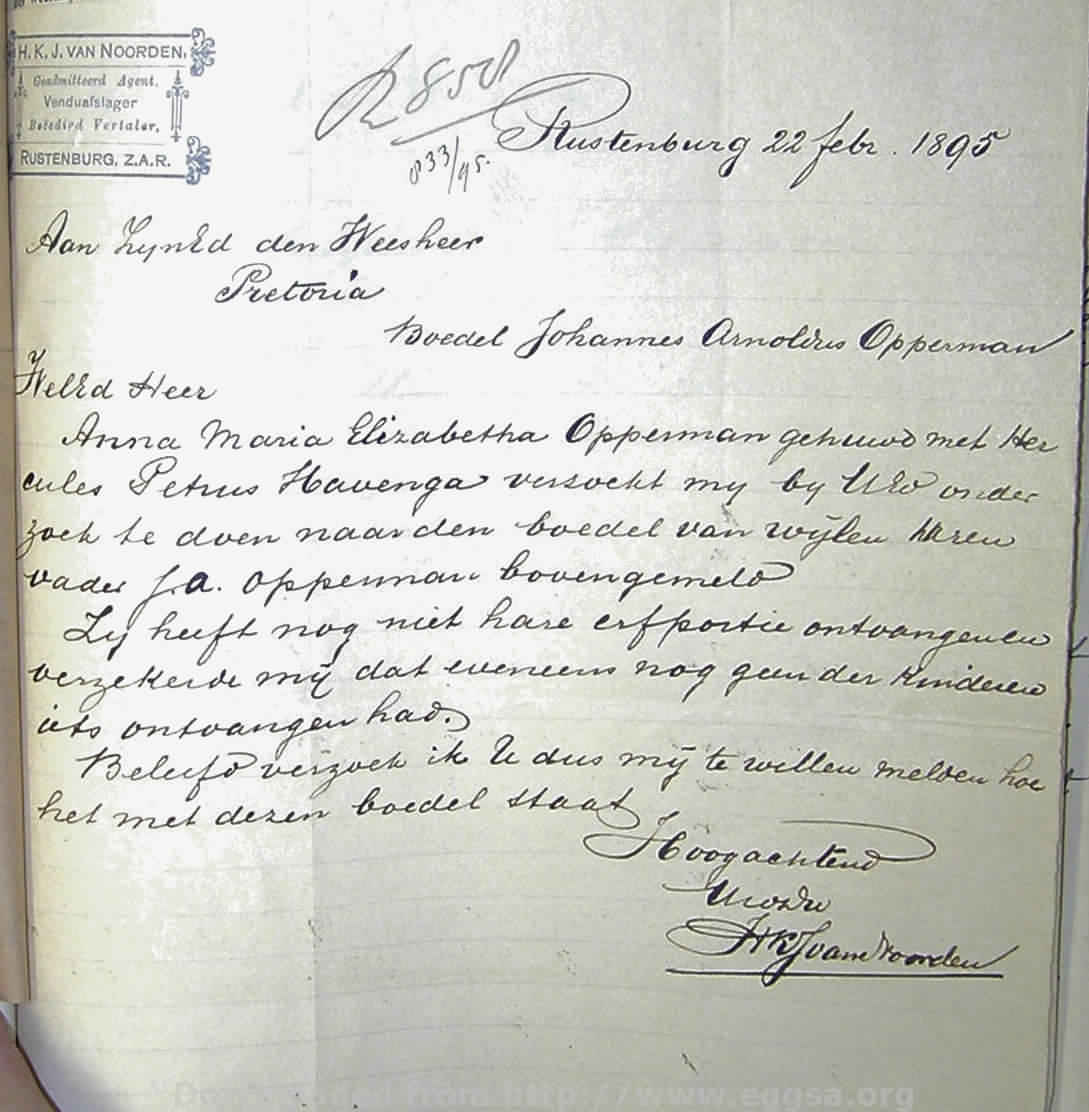 H. K. J. VAN NOORDEN,
Geadmitteerd Agent,
Venduafslager
Beëedigd Vertaler,
RUSTENBURG, Z.A.R.
R 858
833/95.
Rustenburg 22 febr. 1895
Aan ZynEd den Weesheer
Pretoria
Boedel Johannes Arnoldus Opperman
WelEd Heer
Anna Maria Elizabetha Opperman gehuwd met Her
cules Petrus Havenga verzocht my by UEd onder
zoek te doen naar den boedel van wijlen haren
vader J.A. Opperman bovengemeld
Zy heeft nog niet hare erfportie ontvangen en
verzekerde mij dat eveneens nog geen der kinderen
iets ontvangen had.
Beleefd verzoek ik U dus mij te willen melden hoe
het met dezen boedel staat
Hoogachtend
UwEdDw
HKJ van Noorden
Downloaded from http://www.eggsa.org